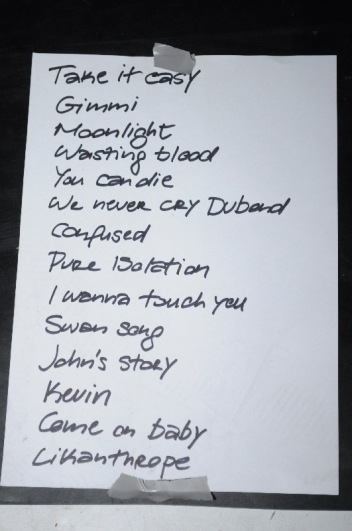 Take it easy
Gimmi
Moonlight
Wasting blood
You can die
We never cry Duband
Confused
Pure Isolation
I wanna touch you
Swan song
John's story
Kevin
Come on baby
Likanthrope